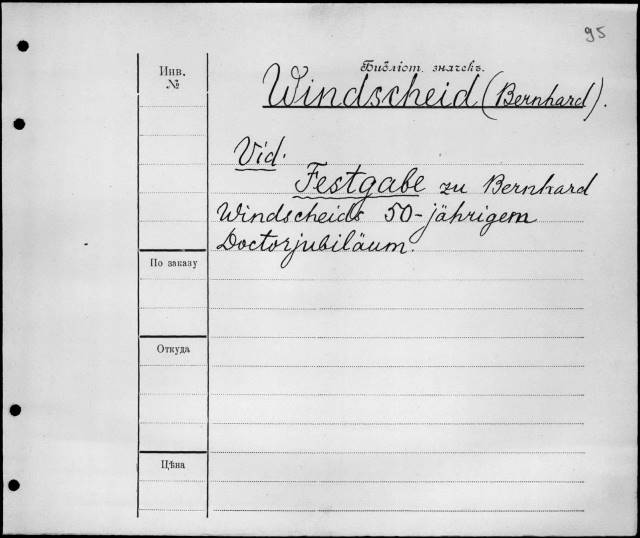 95
Инв.
№
Библіот. значекъ.
Windscheid (Bernhard).
Vid.
Festgabe zu Bernhard
Windscheids 50-jährigem
Doctorjubiläum.
По заказу
Откуда
Цѣна